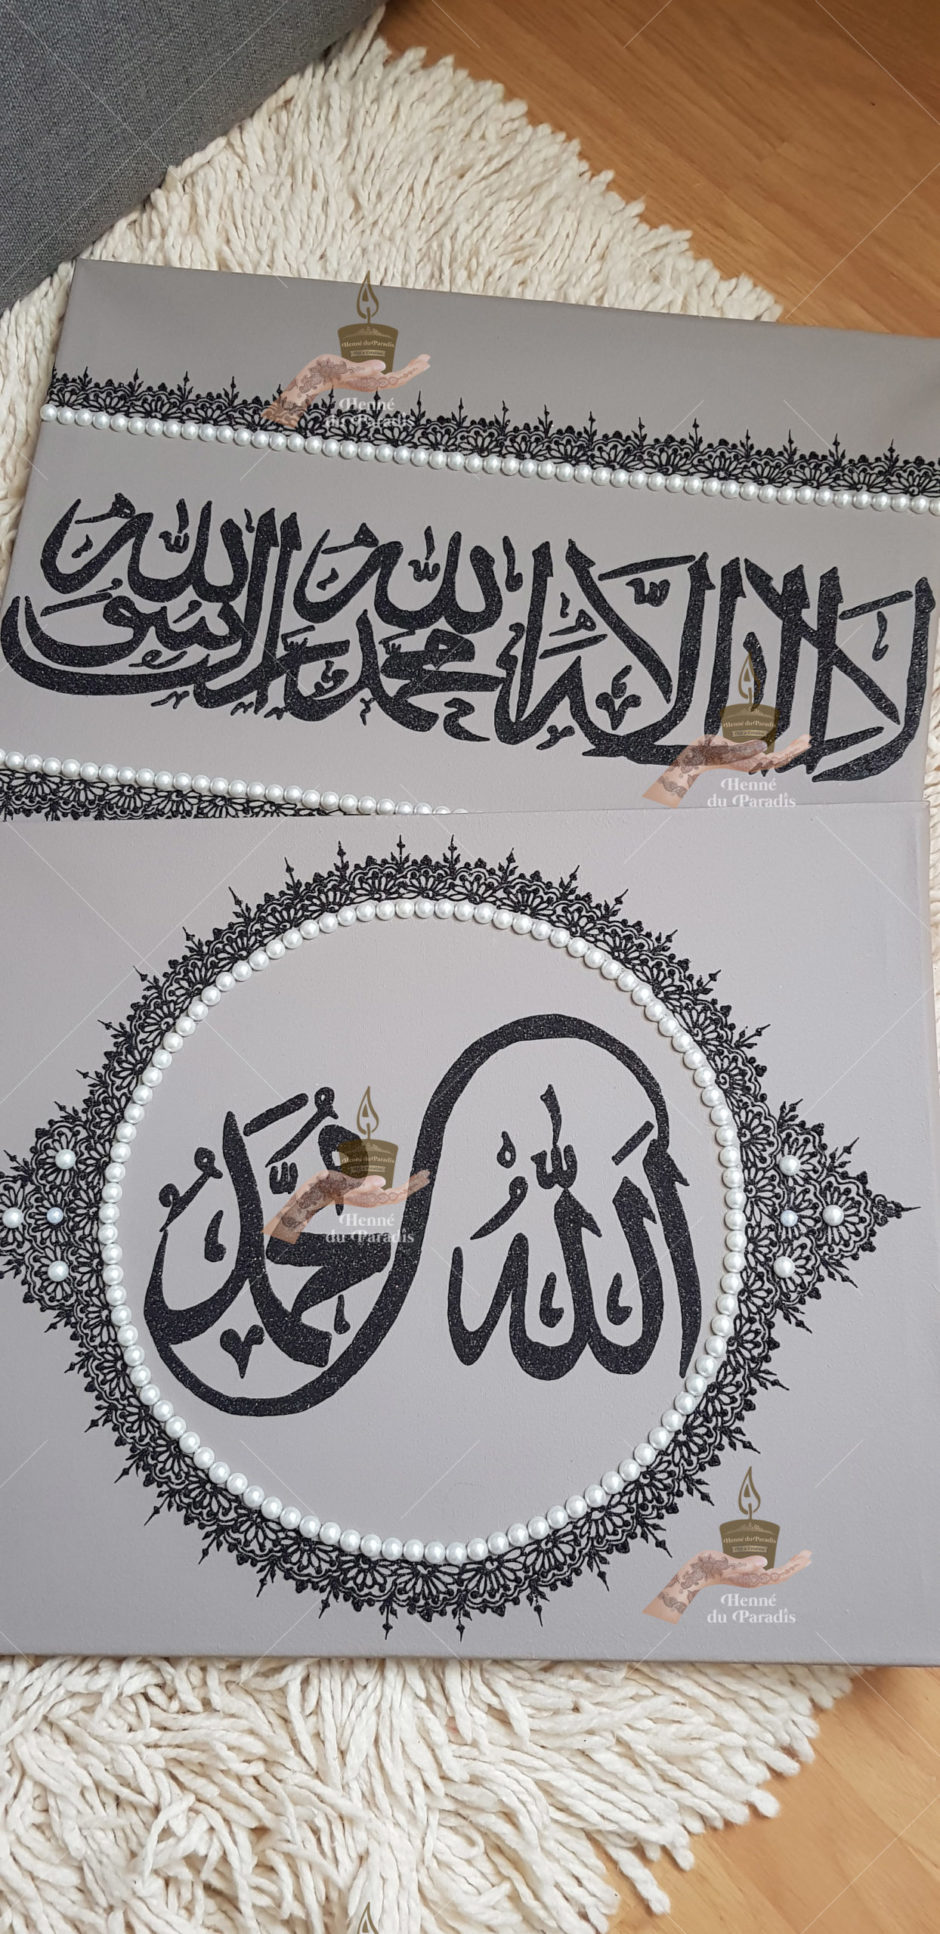 Henné du Paradis
Henné
du Paradis
لا إله إلا الله محمد رسول الله
Henné du Paradis
Henné
du Paradis
الله
محمد
Henné du Paradis
Henné
du Paradis
Henné du Paradis
Henné
du Paradis